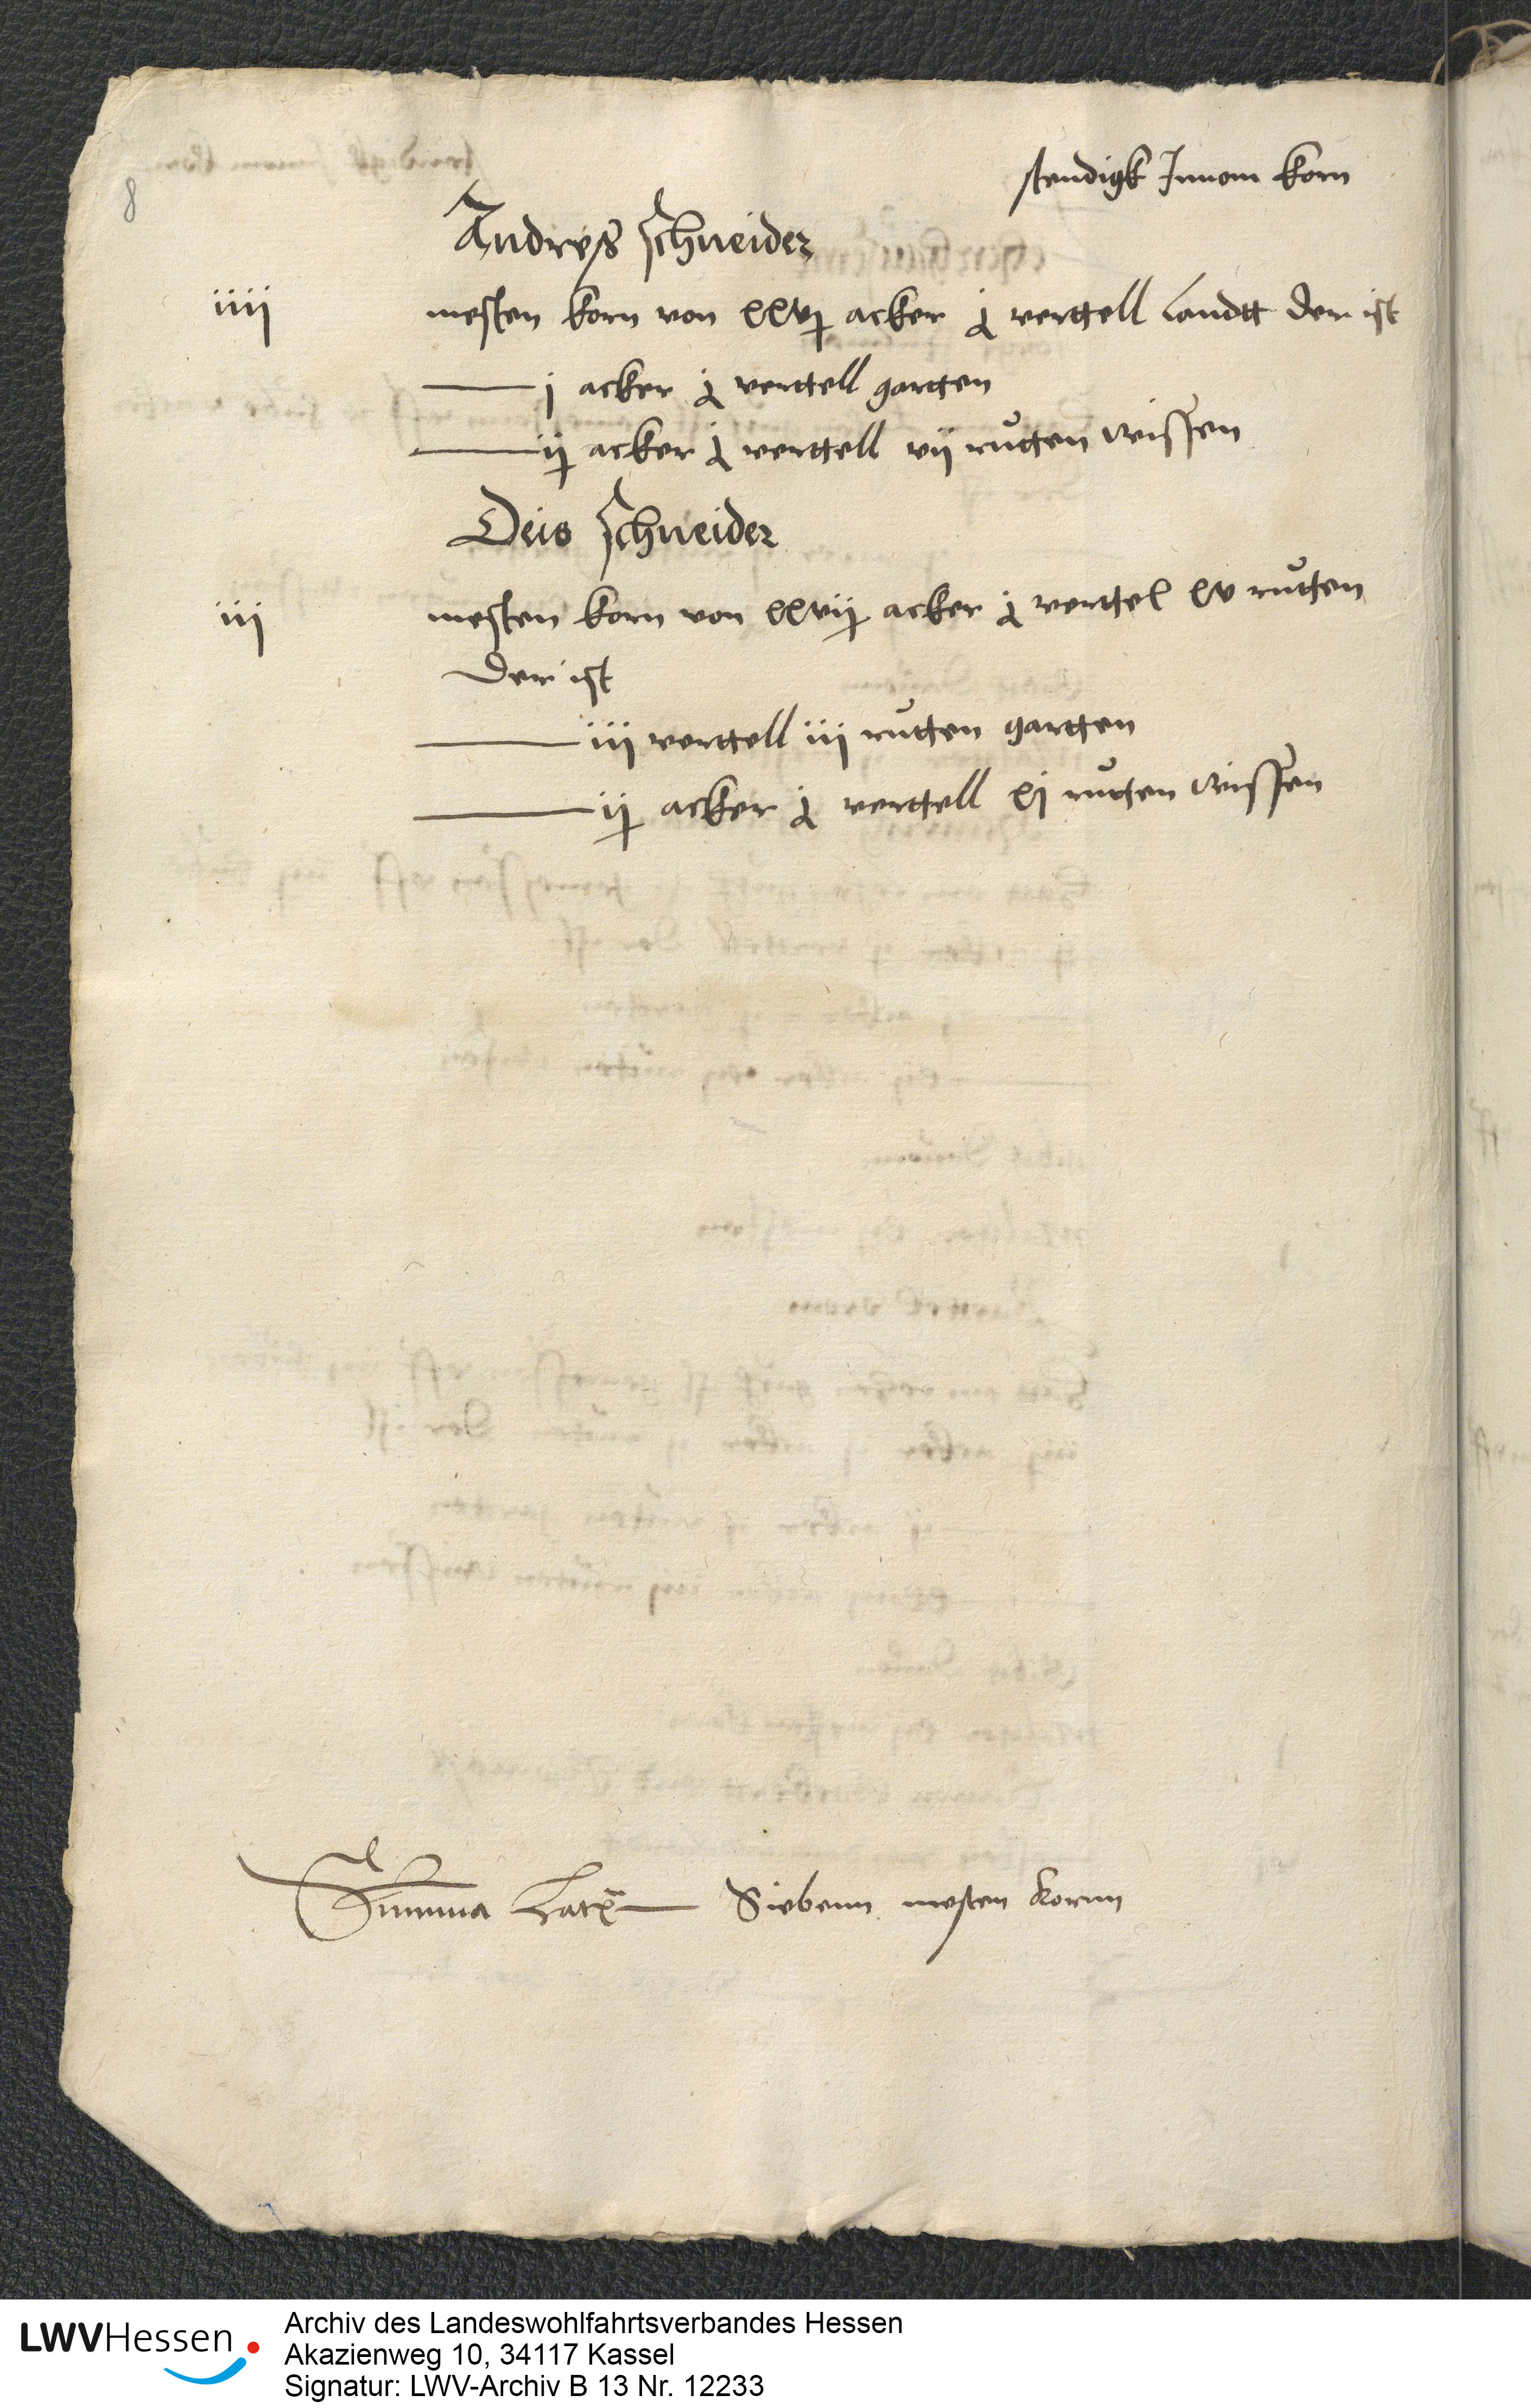 8
stendigk Innom korn
Andreß Schneider
iiij mesten korn von xxvj acker j vertell landtt der ist
j acker j vertell gartten
ij acker j vertell vij rutten wissen
Deis Schneider
iij mesten korn von xxvij acker j vertel xv rutten
der ist
iij vertell iij rutten gartten
ij acker j vertell xj rutten wissen
Summa Siebenn mesten kornn
LWVHessen
Archiv des Landeswohlfahrtsverbandes Hessen
Akazienweg 10, 34117 Kassel
Signatur: LWV-Archiv B 13 Nr. 12233